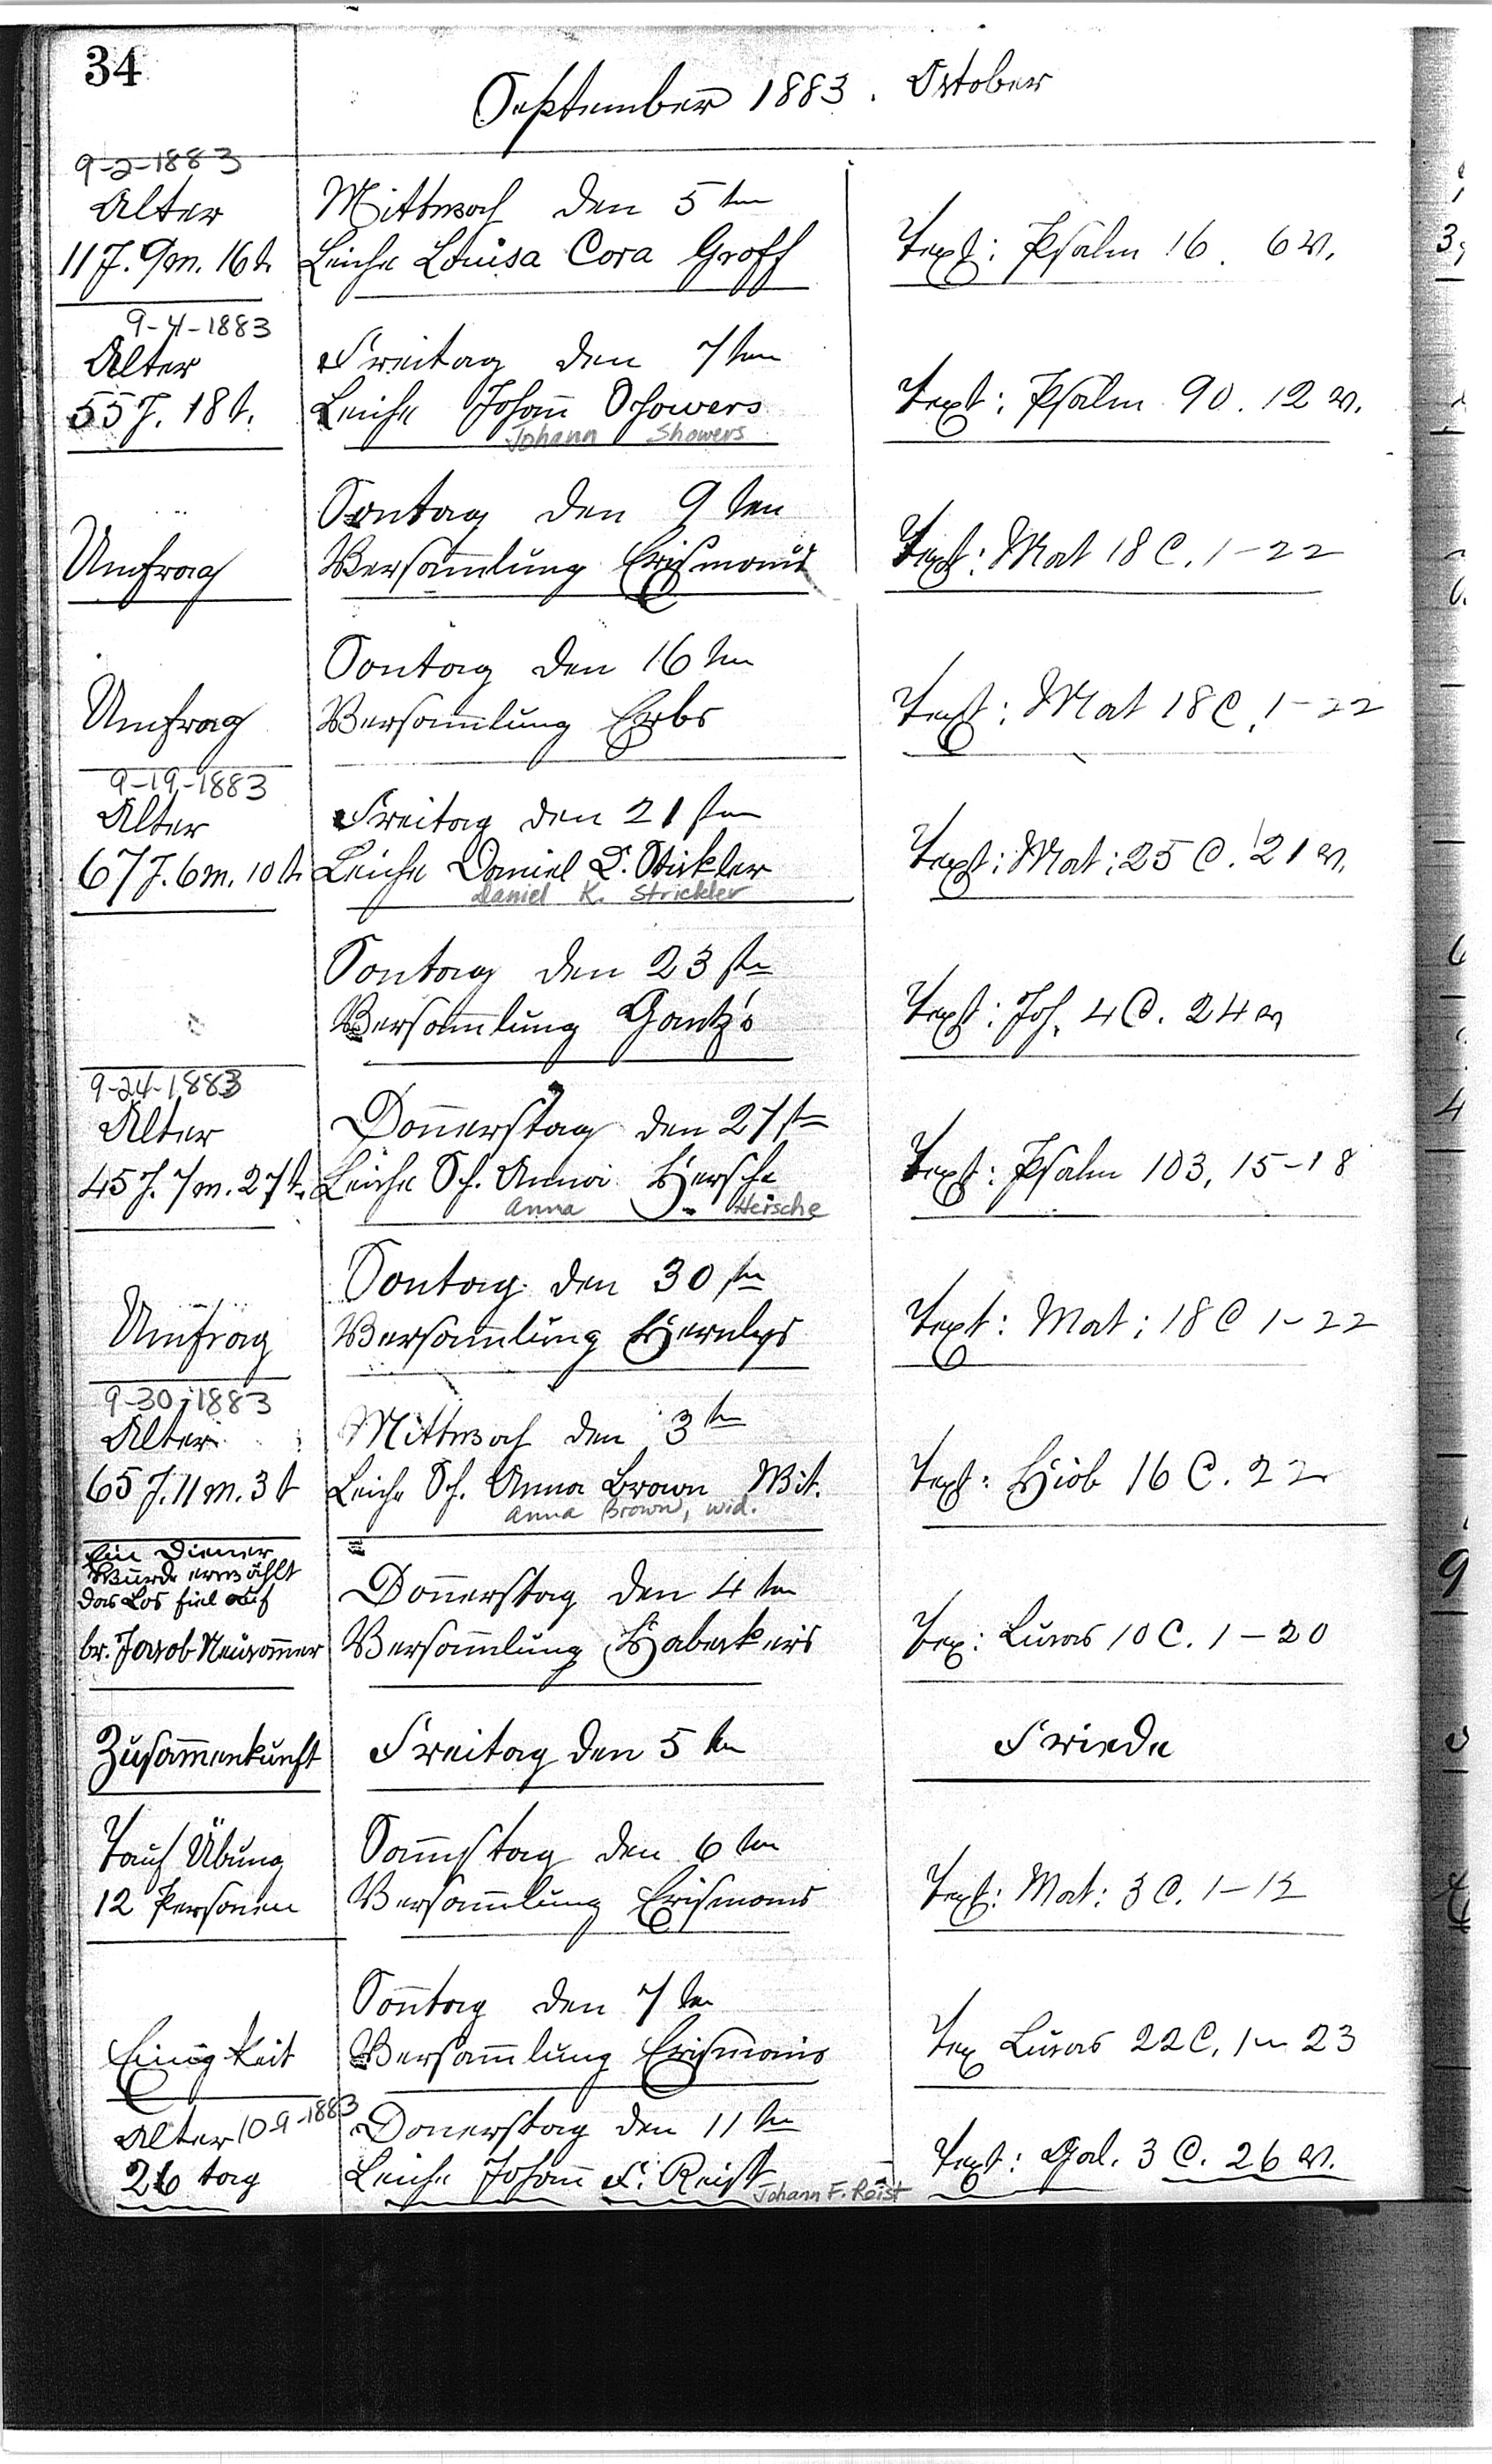 34
September 1883. October
9-2-1883
Alter
11 J. 9 m. 16 t.
Mittwoch den 5ten
Leiche Louisa Cora Groff
Text: Psalm 16. 6 v.
9-4-1883
Alter
55 J. 18 t.
Freitag den 7ten
Leiche Johan̅ Schowers
Johann Showers
Text: Psalm 90. 12 v.
Umfrag
Sontag den 9ten
Versam̅lung Erismans
Text: Mat 18 C. 1-22
Umfrag
Sontag den 16ten
Versam̅lung Erbs
Text: Mat 18 C. 1-22
9-19-1883
Alter
67 J. 6 m. 10 t.
Freitag den 21sten
Leiche Daniel K. Strickler
Daniel K. Strickler
Text: Mat: 25 C. 21 v.
Sontag den 23ste
Versam̅lung Gantz's
Text: Joh. 4 C. 24 v
9-24-1883
Alter
45 J. 7 m. 27 t.
Don̅erstag den 27ste
Leiche Sch. Anna Hersche
Anna Hersche
Text: Psalm 103, 15-18
Umfrag
Sontag den 30ste
Versam̅lung Hernlys
Text: Mat: 18 C 1-22
9-30-1883
Alter
65 J. 11 m. 3 t
Mittwoch den 3ten
Leiche Sch. Anna Brown Wit.
Anna Brown, wid.
Text: Hiob 16 C. 22
Ein Diener
Wurde erwählt
das Los fiel auf
br. Jacob Neucom̅er
Don̅erstag den 4ten
Versam̅lung Habeckers
Tex: Lucas 10 C. 1-20
Zusam̅enkunft
Freitag den 5ten
Friede
Tauf Übung
12 Personen
Sam̅stag den 6ten
Versam̅lung Erismans
Text: Mat: 3 C. 1-12
Einigkeit
Son̅tag den 7ten
Versam̅lung Erismans
Tex Lucas 22 C. 1-23
Alter 10-9-1883
26 tag
Donerstag den 11ten
Leiche Johan̅ F. Reist
Johann F. Reist
Text: Gal. 3 C. 26 v.